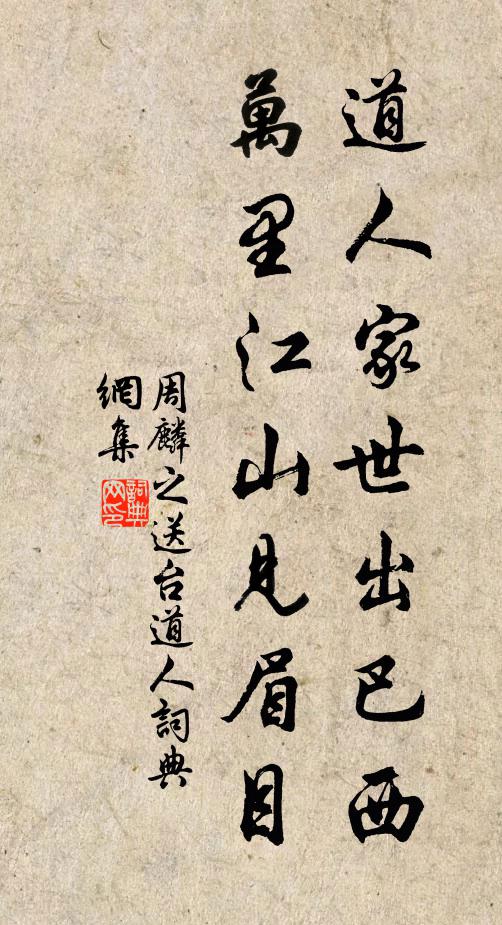 道人家世出巴西
萬里江山見眉目
周麟之送台道人詞典
網集
詞典
网印